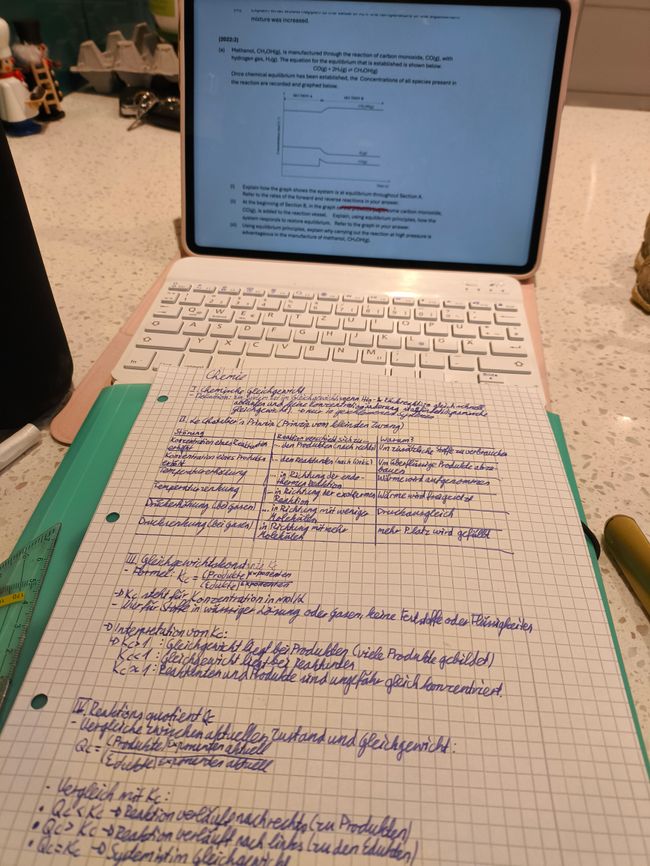 mixture was increased.
[2022:2]
(a) Methanol, CH₃OH(g), is manufactured through the reaction of carbon monoxide, CO(g), with
hydrogen gas, H₂(g). The equation for the equilibrium that is established is shown below.
CO(g) + 2H₂(g) ⇌ CH₃OH(g)
Once chemical equilibrium has been established, the Concentrations of all species present in
the reaction are recorded and graphed below.
SECTION A SECTION B
(i) Explain how the graph shows the system is at equilibrium throughout Section A.
Refer to the rates of the forward and reverse reactions in your answer.
(ii) At the beginning of Section B, in the graph some carbon monoxide,
CO(g), is added to the reaction vessel. Explain, using equilibrium principles, how the
system responds to restore equilibrium. Refer to the graph in your answer.
Using equilibrium principles, explain why carrying out the reaction at high pressure is
advantageous in the manufacture of methanol, CH₃OH(g).
Chemie
I. Chemisches Gleichgewicht
- Definition: Ein System ist im Gleichgewicht, wenn Hin- & Rückreaktion gleich schnell
ablaufen und keine Konzentrationsänderung stattfindet (dynamisches
Gleichgewicht). → nur in geschlossenen Systemen
II. Le Chatelier's Prinzip (Prinzip vom kleinsten Zwang)
Störung Reaktion verschiebt sich zu... Warum?
Konzentration eines Reaktanten erhöht - den Produkten (nach rechts) Um zusätzliche Stoffe zu verbrauchen
Konzentration eines Produktes erhöht - den Reaktanten (nach links) Um überflüssige Produkte abzubauen
Temperaturerhöhung - in Richtung der endothermen Reaktion Wärme wird aufgenommen
Temperatursenkung - in Richtung der exothermen Reaktion Wärme wird freigesetzt
Druckerhöhung (bei Gasen) - in Richtung mit weniger Molekülen Druckausgleich
Drucksenkung (bei Gasen) - in Richtung mit mehr Molekülen mehr Platz wird gefüllt
III. Gleichgewichtskonstante Kc
- Formel: Kc = [Produkte]^Exponenten
[Edukte]^Exponenten
→ Kc steht für Konzentration in mol/L
- Nur für Stoffe in wässriger Lösung oder Gasen, keine Feststoffe oder Flüssigkeiten
→ Interpretation von Kc:
↳ Kc > 1 : Gleichgewicht liegt bei Produkten (viele Produkte gebildet)
Kc < 1 : Gleichgewicht liegt bei Reaktanden
Kc ≈ 1 : Reaktanten und Produkte sind ungefähr gleich konzentriert.
IV. Reaktionsquotient Qc
- Vergleiche zwischen aktuellem Zustand und Gleichgewicht:
Qc = [Produkte]^Exponenten aktuell
[Edukte]^Exponenten aktuell
- Vergleich mit Kc:
• Qc < Kc → Reaktion verläuft nach rechts (zu Produkten)
• Qc > Kc → Reaktion verläuft nach links (zu den Edukten)
• Qc = Kc → System ist im Gleichgewicht